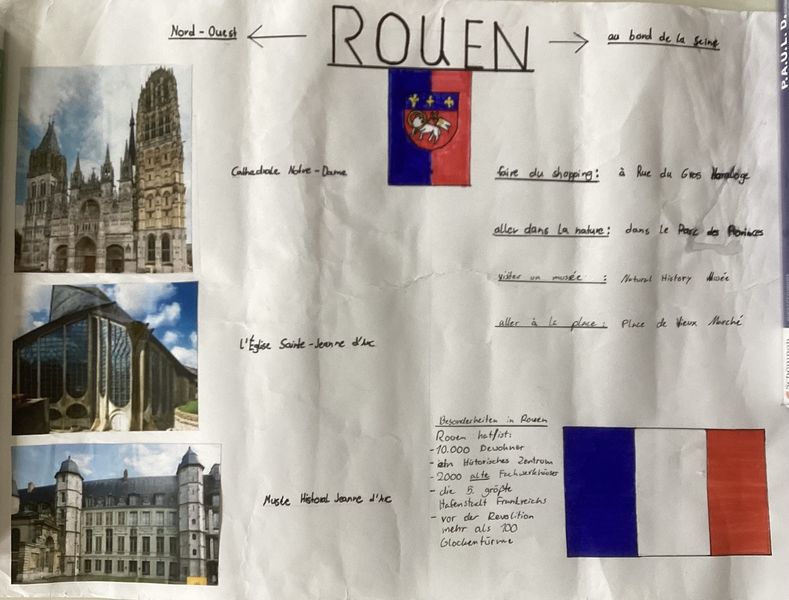 Nord-Ouest
ROUEN
au bord de la Seine
P.A.U.L. D.
Cathédrale Notre-Dame
faire du shopping: à Rue du Gros Horologe
aller dans la nature: dans le Parc des Provinces
visiter un musée : Natural History Musée
aller à la place: Place de Vieux Marché
L'Église Sainte-Jeanne d'Arc
Musée Historial Jeanne d'Arc
Besonderheiten in Rouen
Rouen hat/ist:
- 10.000 Bewohner
- ein Historisches Zentrum
- 2000 alte Fachwerkhäuser
- die 5. größte
Hafenstadt Frankreichs
- vor der Revolution
mehr als 100
Glockentürme